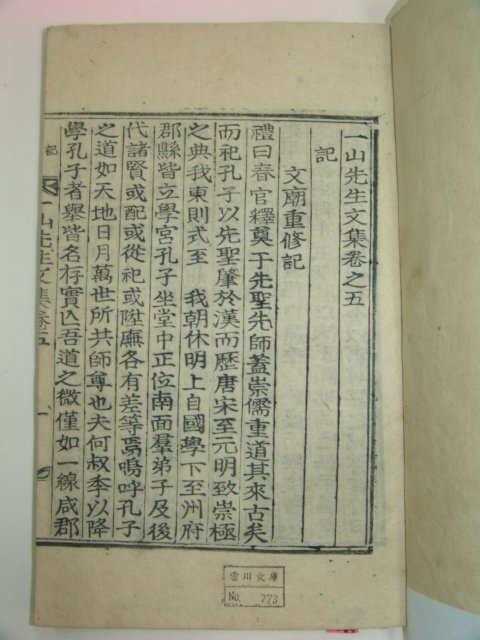 一山先生文集卷之五
記
文廟重修記
禮曰春官釋奠于先聖先師蓋崇儒重道其來古矣
而祀孔子以先聖肇於漢而歷唐宋至元明致崇極
之典我東則式至 我朝休明上自國學下至州府
郡縣皆立學宮孔子坐堂中正位南面羣弟子及後
代諸賢或配或從祀或陞廡各有差等焉嗚呼孔子
之道如天地日月萬世所共師尊也夫何叔季以降
學孔子者擧皆名存實亡吾道之微僅如一線咸郡
記
一山先生文集卷五
一
雲川文庫
No. 773